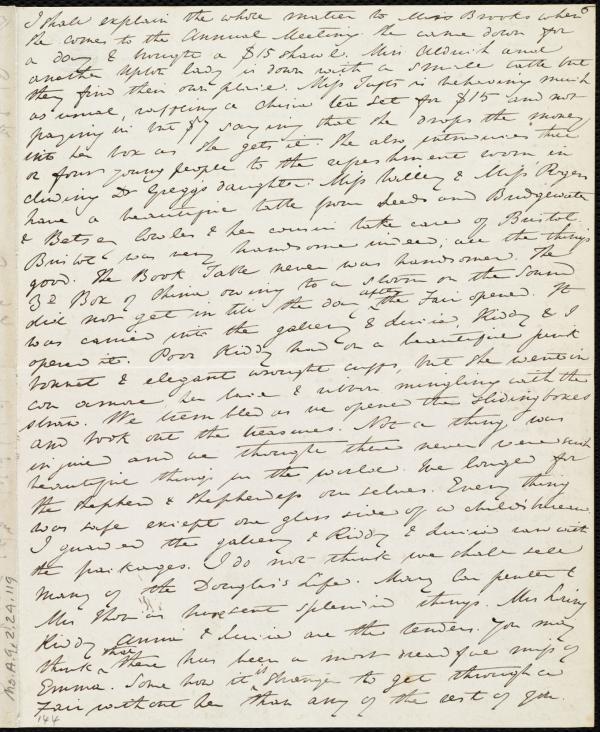 6
I shall explain the whole matter to Miss Brooks when
she comes to the Annual Meeting. She came down for
a day & bought a $15 shawl. Mrs Aldrich and
another Upton lady is down with a small table but
they find their own place. Miss Tafts is behaving much
as usual, raffling a china tea set for $15 and not
paying in but $7 saying that she drops the money
into her box as she gets it. She also introduces three
or four young people to the refreshment room in
cluding Dr Gregg's daughter. Miss Willey & Miss Rogers
have a beautiful table from Leeds and Bridgewater
& Betsey Cowles & her cousin take care of Bristol.
Bristol was very handsome indeed; all the things
good. The Book Table never was handsomer. The
3d Box of China owing to a storm on the Sound
did not get in till the day after the Fair opened. It
was carried into the gallery & Louisa, Kiddy & I
opened it. Poor Kiddy had on a beautiful pink
bonnet & elegant wrought cuffs, but she went in
con amore, her lace & ribbon mingling with the
straw. We trembled as we opened the sliding boxes
and took out the treasures. Not a thing was
injured and we thought there never were such
beautiful things in the world. We longed for
the shepherd & shepherdess ourselves. Every thing
was safe except one glass side of a child's bureau.
I guarded the gallery & Kiddy & Louisa ran with
the packages. I do not think we shall sell
many of the Douglass's Life. Mary Carpenter &
Mrs Thomas have sent splendid things. Mrs Loring
Kiddy Anna & Louisa are the tenders. You may
think that there has been a most dreadful miss of
Emma. Some how it is stranger to get through a
Fair without her than any of the rest of you.
144
Ms.A.9.2.24.119